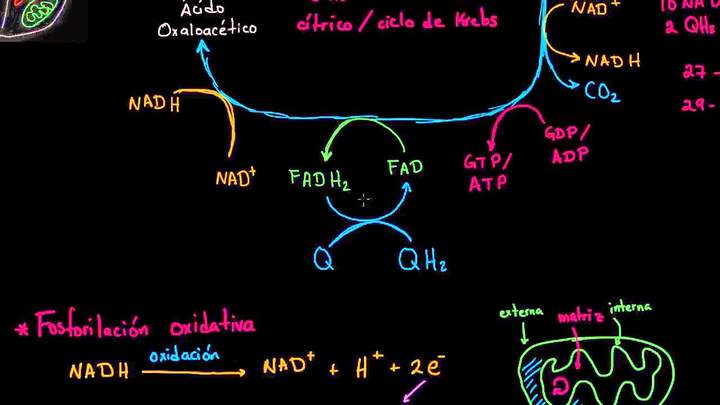 Ácido
Oxaloacético
cítrico / ciclo de Krebs
NAD+
2 QH2
NADH
CO2
27 -
29 -
NADH
NAD+
FADH2
FAD
GTP/
ATP
GDP/
ADP
Q
QH2
* Fosforilación oxidativa
NADH oxidación NAD+ + H+ + 2e-
externa
matriz
interna